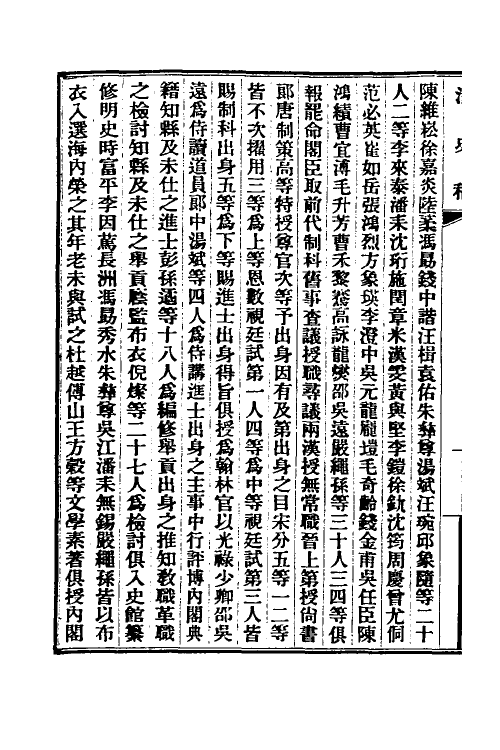 清史稿
陳維崧徐嘉炎陸葇馮勗錢中諧汪楫袁佑朱彝尊湯斌汪琬邱象隨等二十
人二等李來泰潘耒沈珩施閏章米漢雯黃與堅李鎧徐釚沈筠周慶曾尤侗
范必英崔如岳張鴻烈方象瑛李澄中吳元龍龐塏毛奇齡錢金甫吳任臣陳
鴻績曹宜溥毛升芳曹禾黎騫高詠龍燮邵吳遠嚴繩孫等三十人三四等俱
報罷命閣臣取前代制科舊事查議授職尋議兩漢授無常職晉上第授尚書
郎唐制策高等特授尊官次等予出身因有及第出身之目宋分五等一二等
皆不次擢用三等爲上等恩數視廷試第一人四等爲中等視廷試第三人皆
賜制科出身五等爲下等賜進士出身得旨俱授爲翰林官以光祿少卿邵吳
遠爲侍讀道員郎中湯斌等四人爲侍講進士出身之主事中行評博內閣典
籍知縣及未仕之進士彭孫遹等十八人爲編修舉貢出身之推知教職革職
之檢討知縣及未仕之舉貢廕監布衣倪燦等二十七人爲檢討俱入史館纂
修明史時富平李因篤長洲馮勗秀水朱彝尊吳江潘耒無錫嚴繩孫皆以布
衣入選海內榮之其年老未與試之杜越傅山王方穀等文學素著俱授內閣